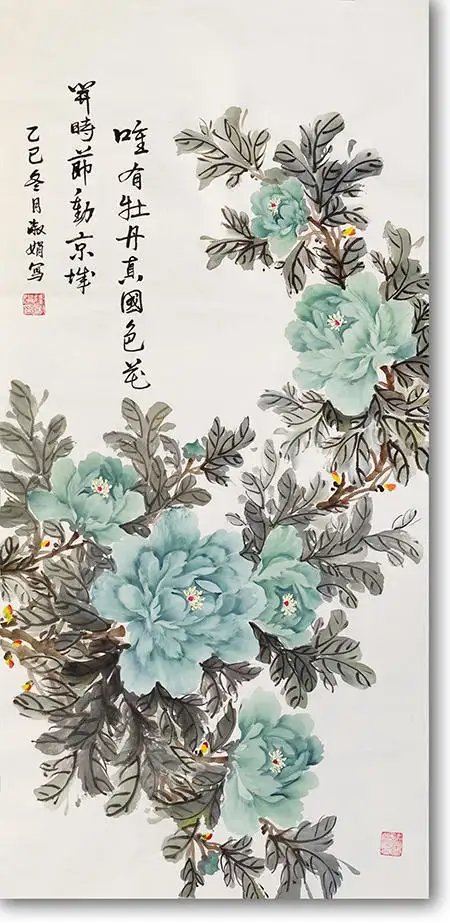 唯有牡丹真國色花
開時節動京城
乙巳冬月淑娟寫